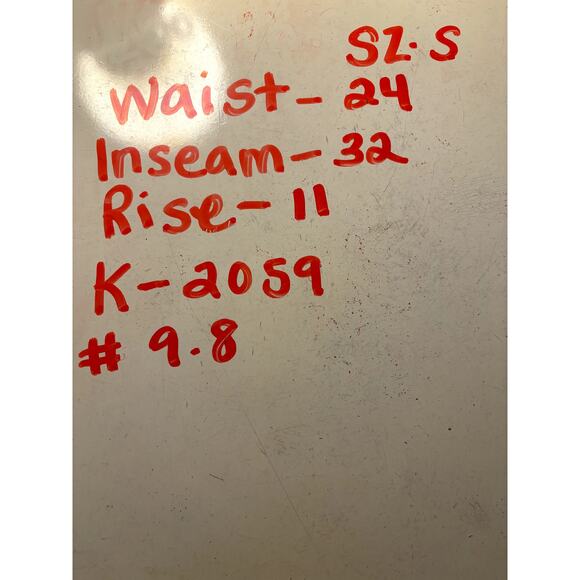 SZ. S
Waist - 24
Inseam - 32
Rise - 11
K - 2059
# 9.8